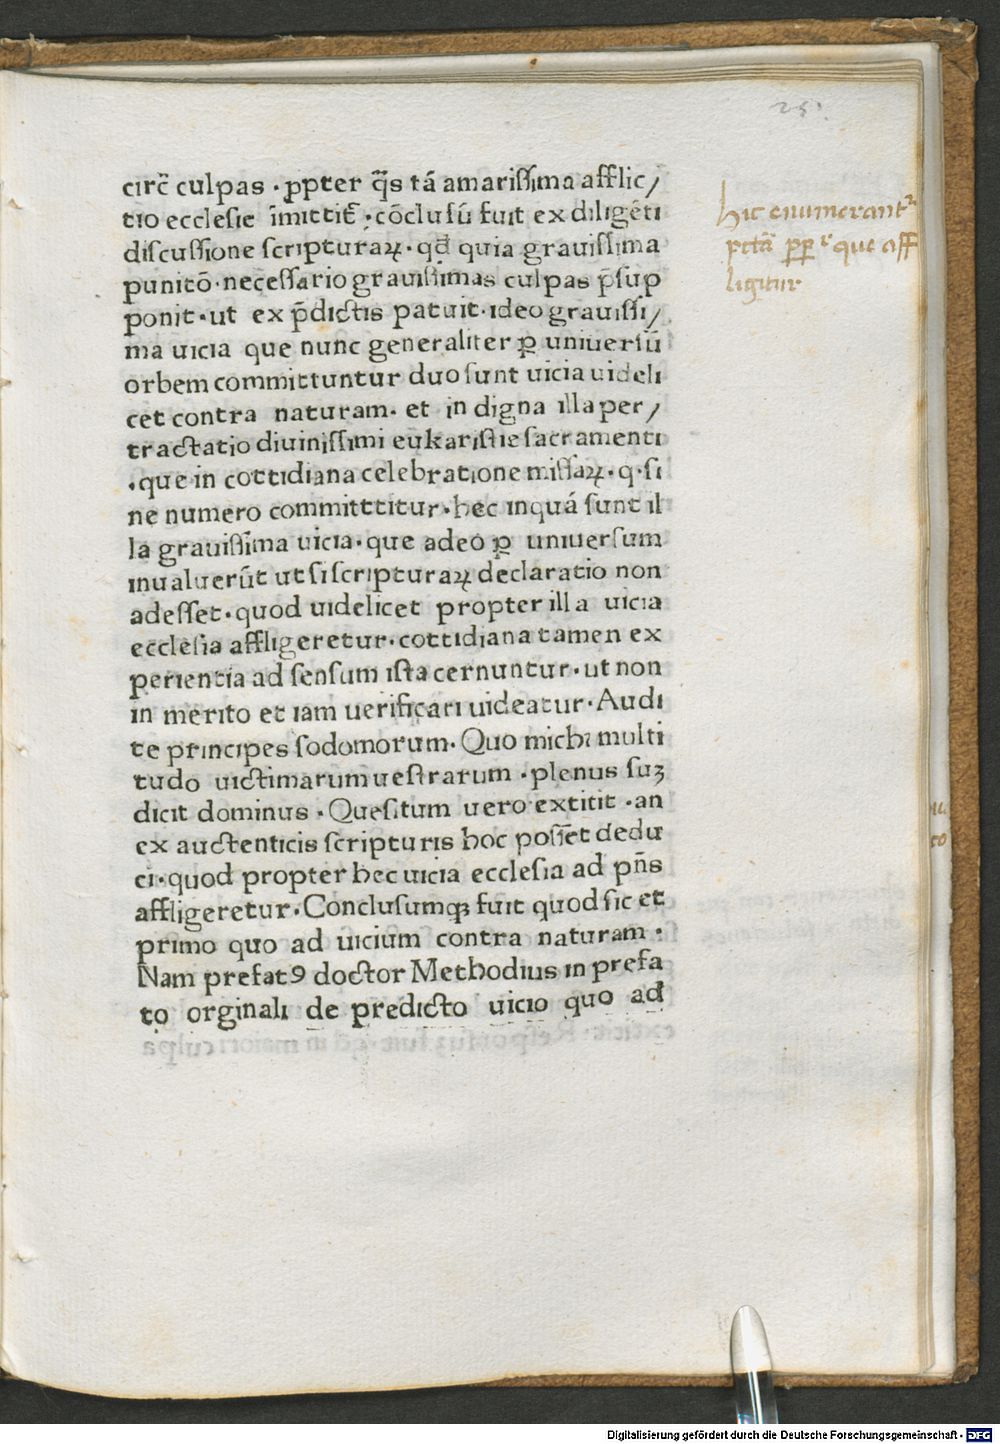 25
circ̄ culpas · ꝓpter q̄s tā amarissima afflic/
tio ecclesie īmittit᷑ · cōclusū fuit ex diligēti
discussione scripturaꝝ · qđ quia grauissima
punitō · necessario grauissimas culpas p̄sup
ponit · ut ex p̄dictis patuit · ideo grauissi/
ma uicia que nunc generaliter ꝑ uniuersū
orbem committuntur duo sunt uicia uideli
cet contra naturam · et in digna illa per/
tractatio diuinissimi eukaristie sacramenti
· que in cottidiana celebratione missaꝝ · q · si
ne numero committtitur · hec inquā sunt il
la grauissīma uicia · que adeo ꝑ uniuersum
inualuerūt ut si scripturaꝝ declaratio non
adesset · quod uidelicet propter illa uicia
ecclesia affligeretur · cottidiana tamen ex
perientia ad sensum ista cernuntur · ut non
in merito et iam uerificari uideatur · Audi
te principes sodomorum · Quo michi multi
tudo uictimarum uestrarum · plenus suꝫ
dicit dominus · Quesitum uero extitit · an
ex auctenticis scripturis hoc posset dedu
ci · quod propter hec uicia ecclesia ad pn̄s
affligeretur · Conclusumqꝫ fuit quod sic et
primo quo ad uicium contra naturam ·
Nam prefatꝰ doctor Methodius in prefa
to orginali de predicto uicio quo ad
hic enumerant᷑
pctā ꝑꝑ que aff
ligitur
Digitalisierung gefördert durch die Deutsche Forschungsgemeinschaft · DFG